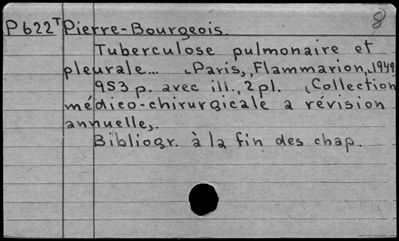 P622T Pierre-Bourgeois. 8
Tuberculose pulmonaire et
pleurale... Paris, Flammarion, 1949
953 p. avec ill., 2 pl. (Collection
médico-chirurgicale a révision
annuelle).
Bibliogr. à la fin des chap.